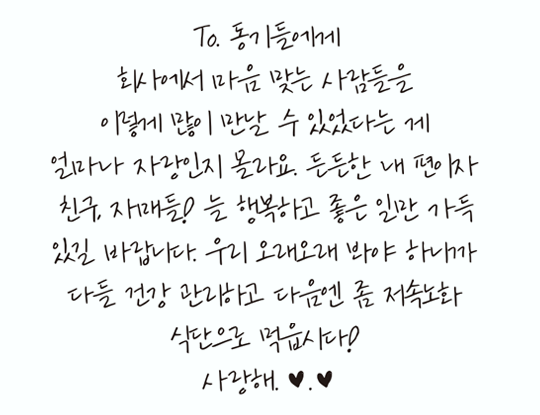 To. 동기들에게
회사에서 마음 맞는 사람들을
이렇게 많이 만날 수 있었다는 게
얼마나 자랑인지 몰라요. 든든한 내 편이자
친구, 자매들! 늘 행복하고 좋은 일만 가득
있길 바랍니다. 우리 오래오래 봐야 하니까
다들 건강 관리하고 다음엔 좀 저속노화
식단으로 먹읍시다!
사랑해. ♥.♥